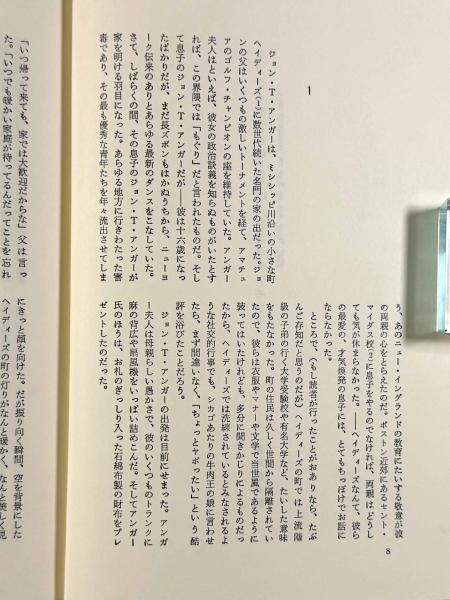 1
ジョン・T・アンガーは、ミシシッピ川沿いの小さな町
ヘイディーズ(1)に数世代続いた名門の家の出だった。ジョ
ンの父はいくつもの激しいトーナメントを経て、アマチュ
アのゴルフ・チャンピオンの座を維持していた。アンガー
夫人はといえば、彼女の政治談義を知らぬものがいたとす
れば、この界隈では「もぐり」だと言われたものだ。そし
て息子のジョン・T・アンガーだが――彼は十六歳になっ
たばかりだが、まだ長ズボンもはかぬうちから、ニューヨ
ーク伝来のありとあらゆる最新のダンスをこなしていた。
さて、しばらくの間、その息子のジョン・T・アンガーが
家を明ける羽目になった。あらゆる地方に行きわたった害
毒であり、その最も優秀な青年たちを年々流出させてしま
う、あのニュー・イングランドの教育にたいする敬意が彼
の両親の心をとらえたのだ。ボストン近郊にあるセント・
マイダス校(2)に息子をやるのでなければ、両親はどうし
ても気が休まらなかった。――ヘイディーズなんて、彼ら
の最愛の、才気煥発の息子には、とてもちっぽけでお話に
ならなかった。
ところで、(もし読者が行ったことがおありなら、たぶ
んご存知だと思うのだが)、ヘイディーズの町では上流階
級の子弟の行く大学受験校や有名大学など、たいした意味
をもたなかった。町の住民は久しく世間から隔離されてい
たので、彼らは衣服やマナーや文学で当世風であるように
装ってはいたけれども、多分に聞きかじりによるものだっ
たから、ヘイディーズでは洗練されているとみなされるよ
うな社交的行事でも、シカゴあたりの牛肉王の娘に言わせ
たら、まず間違いなく、「ちょっとヤボったい」という酷
評を浴びたことだろう。
ジョン・T・アンガーの出発は目前にせまった。アンガ
ー夫人は母親らしい愚かさで、彼のいくつものトランクに
麻の背広や扇風機をいっぱい詰めこんだ。そしてアンガー
氏のほうは、お札のぎっしり入った石綿布製の財布をプレ
ゼントしたのだった。
「いつ帰って来ても、家では大歓迎だからな」父は言っ
た。「いつでも暖かい家庭が待ってるんだってことを忘れ
にきっと顔を向けた。だが振り向く瞬間、空を背景にした
ヘイディーズの町の灯りがなんと暖かく、なんと美しく見
8